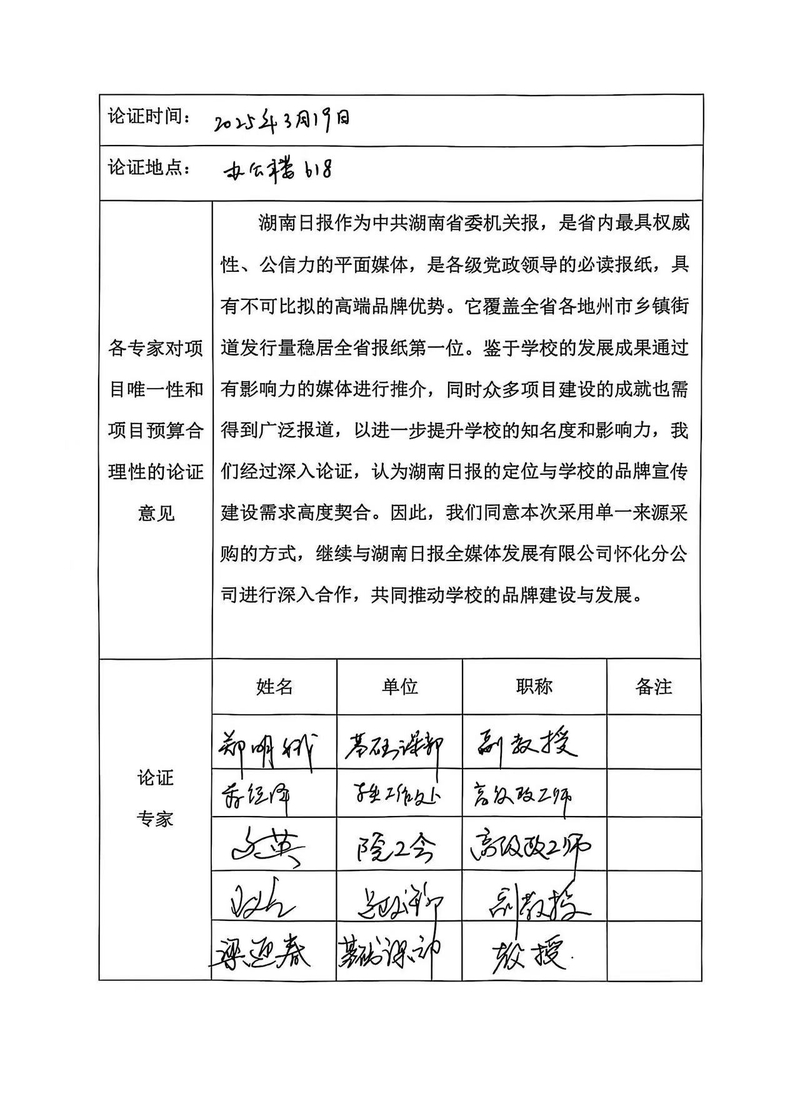 论证时间： 2025年3月19日
论证地点： 办公楼618
各专家对项
目唯一性和
项目预算合
理性的论证
意见
湖南日报作为中共湖南省委机关报，是省内最具权威
性、公信力的平面媒体，是各级党政领导的必读报纸，具
有不可比拟的高端品牌优势。它覆盖全省各地州市乡镇街
道发行量稳居全省报纸第一位。鉴于学校的发展成果通过
有影响力的媒体进行推介，同时众多项目建设的成就也需
得到广泛报道，以进一步提升学校的知名度和影响力，我
们经过深入论证，认为湖南日报的定位与学校的品牌宣传
建设需求高度契合。因此，我们同意本次采用单一来源采
购的方式，继续与湖南日报全媒体发展有限公司怀化分公
司进行深入合作，共同推动学校的品牌建设与发展。
论证
专家
姓名 单位 职称 备注
郑明 基础课部 副教授
学生工作处 高级政工师
文英 院工会 高级政工师
副教授
梁迎春 基础课部 教授